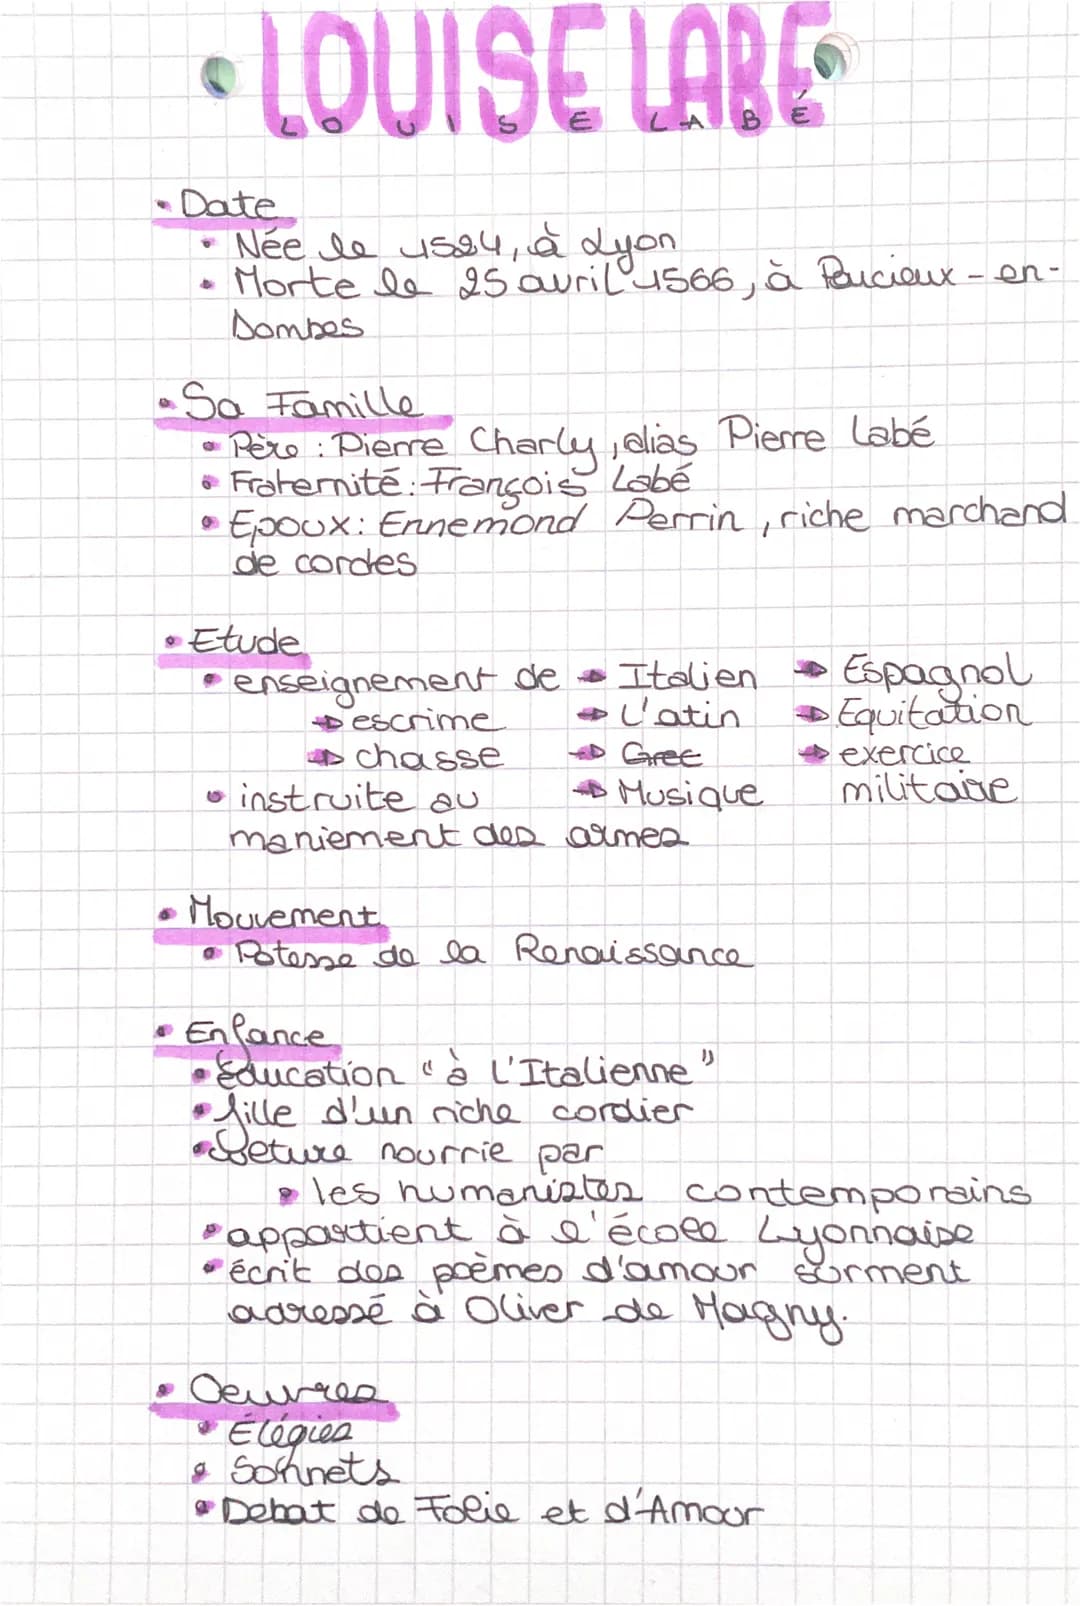 LOUISE LABÉ
LOUISE LABÉ
• Date
• Née le 1524, à Lyon
• Morte le 25 avril 1566, à Parcieux-en-
Dombes
• Sa Famille
• Père : Pierre Charly, alias Pierre Labé
• Fraternité : François Labé
• Epoux : Ennemond Perrin, riche marchand
de cordes
• Etude
• enseignement de → Italien → Espagnol
→ escrime → L'atin → Equitation
→ chasse → Grec → exercice
• instruite au → Musique militaire
maniement des armes
• Mouvement
• Potesse de la Renaissance
• Enfance
• Education "à l'Italienne"
• fille d'un riche cordier
• Leture nourrie par
• les humanistes contemporains
• appartient à l'école Lyonnaise
• écrit des poèmes d'amour surment
adressé à Oliver de Magny.
• Oeuvres
• Élégies
• Sonnets
• Debat de Folie et d'Amour